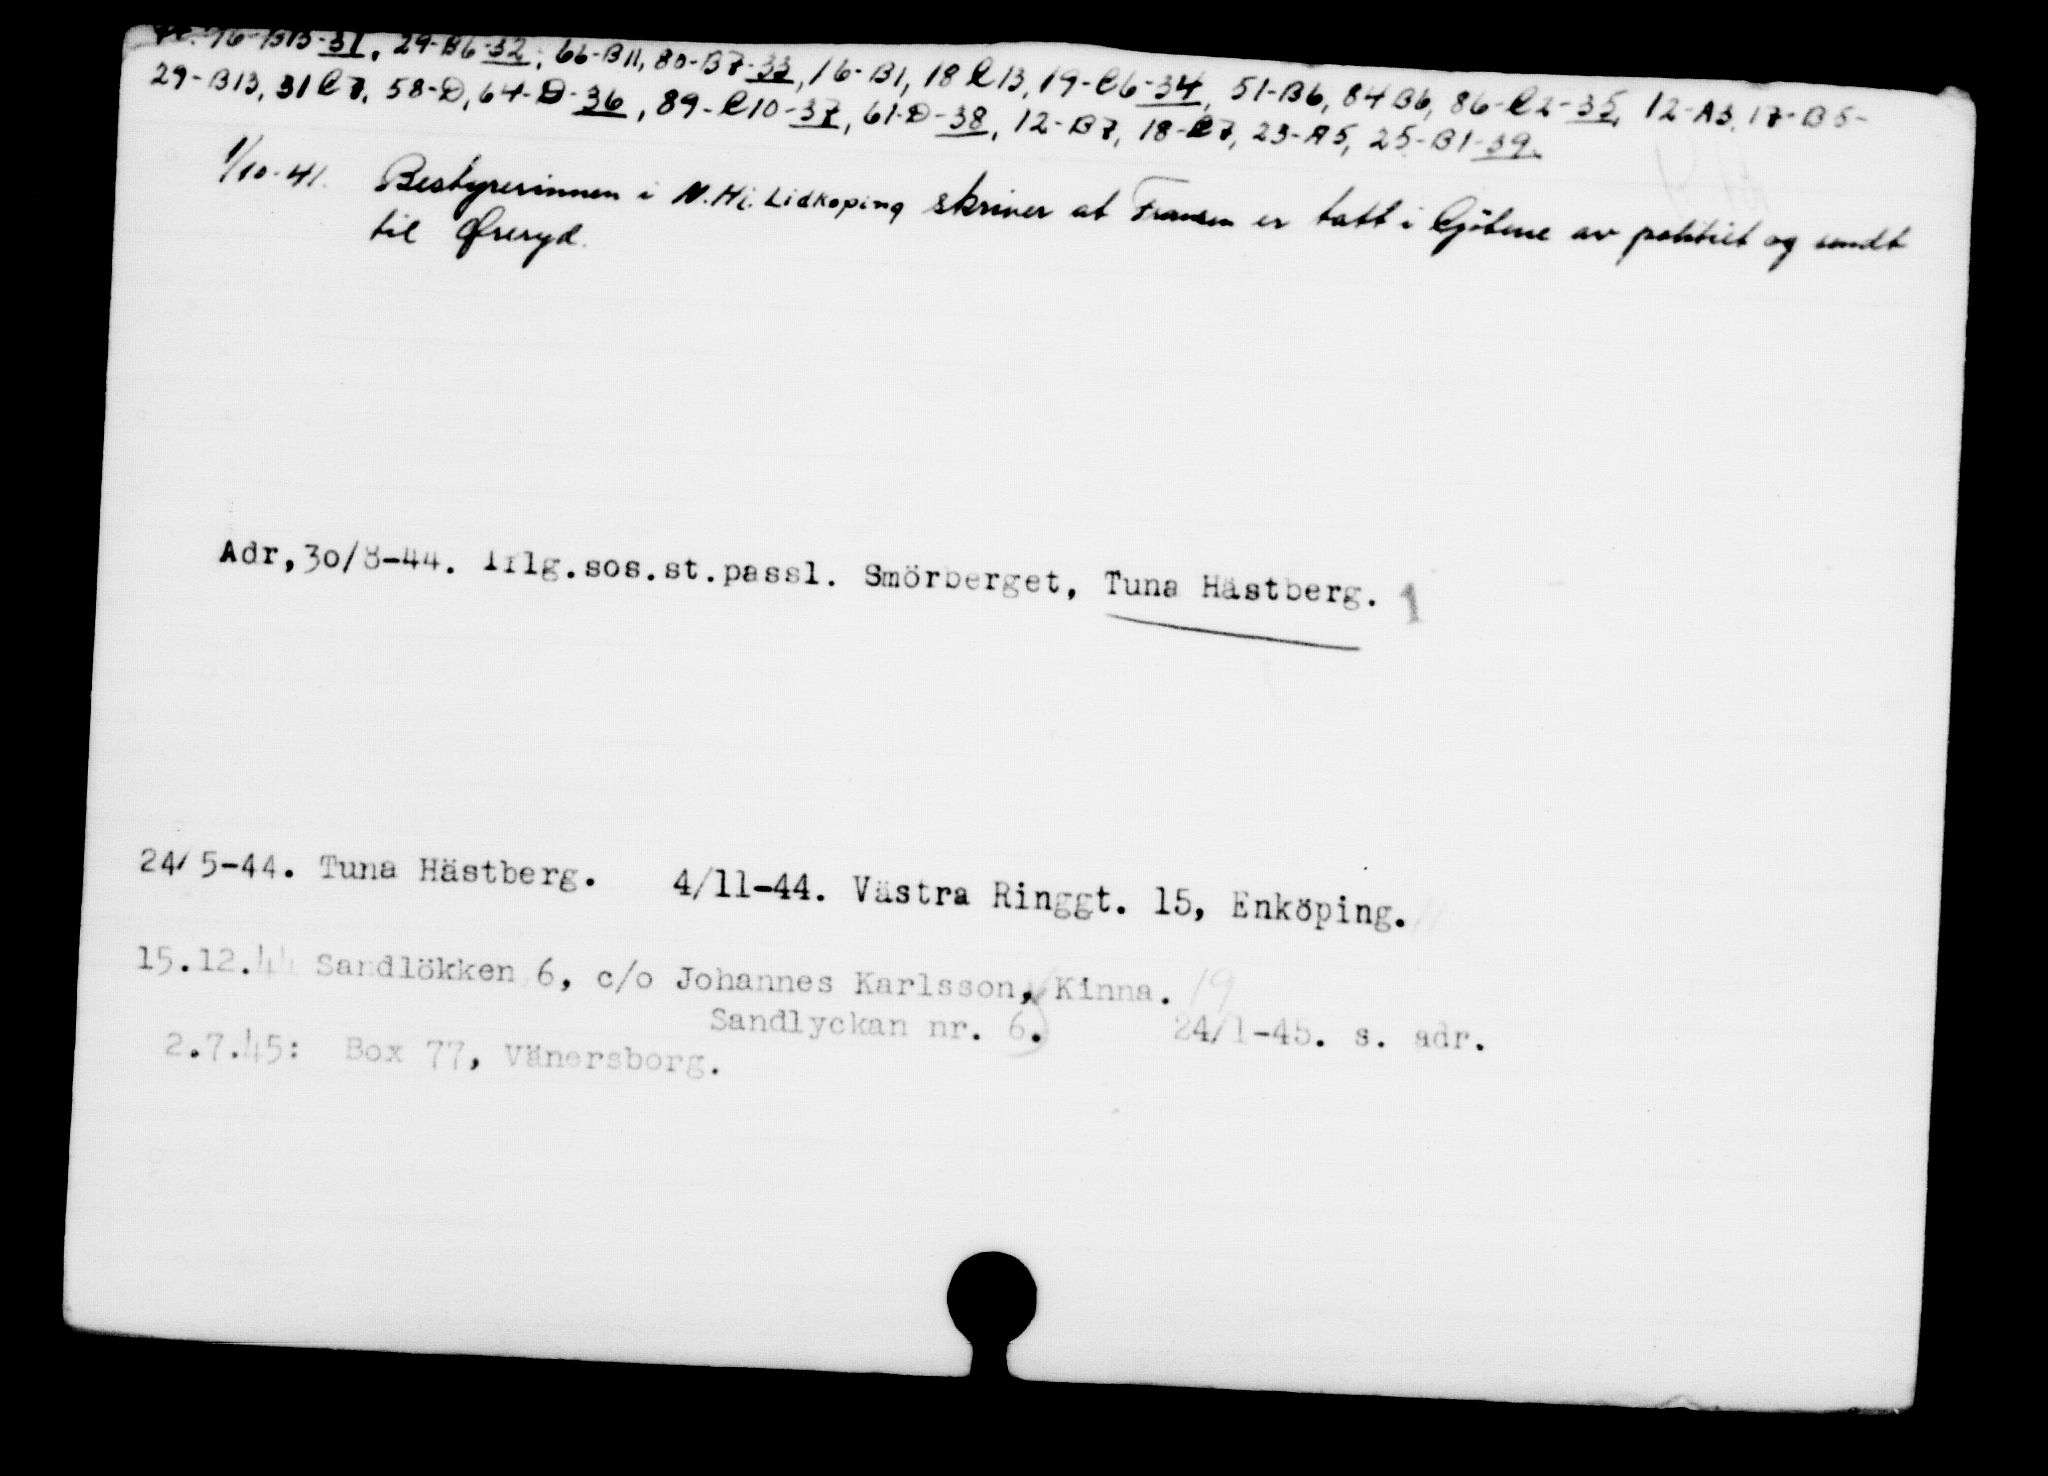 76-B13-31, 29-B6-32, 66-B11, 80-B7-33, 16-B1, 18 C13, 19-C6-34, 51-B6, 84 B6, 86-C2-35, 12-A3, 17-B5-
29-B13, 31 C7, 58-D, 64-D-36, 89-C10-37, 61-D-38, 12-B7, 18-C7, 23-A5, 25-B1-39.
1/10-41. Bestyrerinnen i N.Hj. Lidköping skriver at Fransen er tatt i Götene av politiet og sendt
til Øreryd.
Adr, 30/8-44. Iflg.sos.st.passl. Smörberget, Tuna Hästberg. 1
24/5-44. Tuna Hästberg. 4/11-44. Västra Ringgt. 15, Enköping.
15.12.44 Sandlökken 6, c/o Johannes Karlsson, Kinna. 19
Sandlyckan nr. 6. 24/1-45. s. adr.
2.7.45: Box 77, Vänersborg.